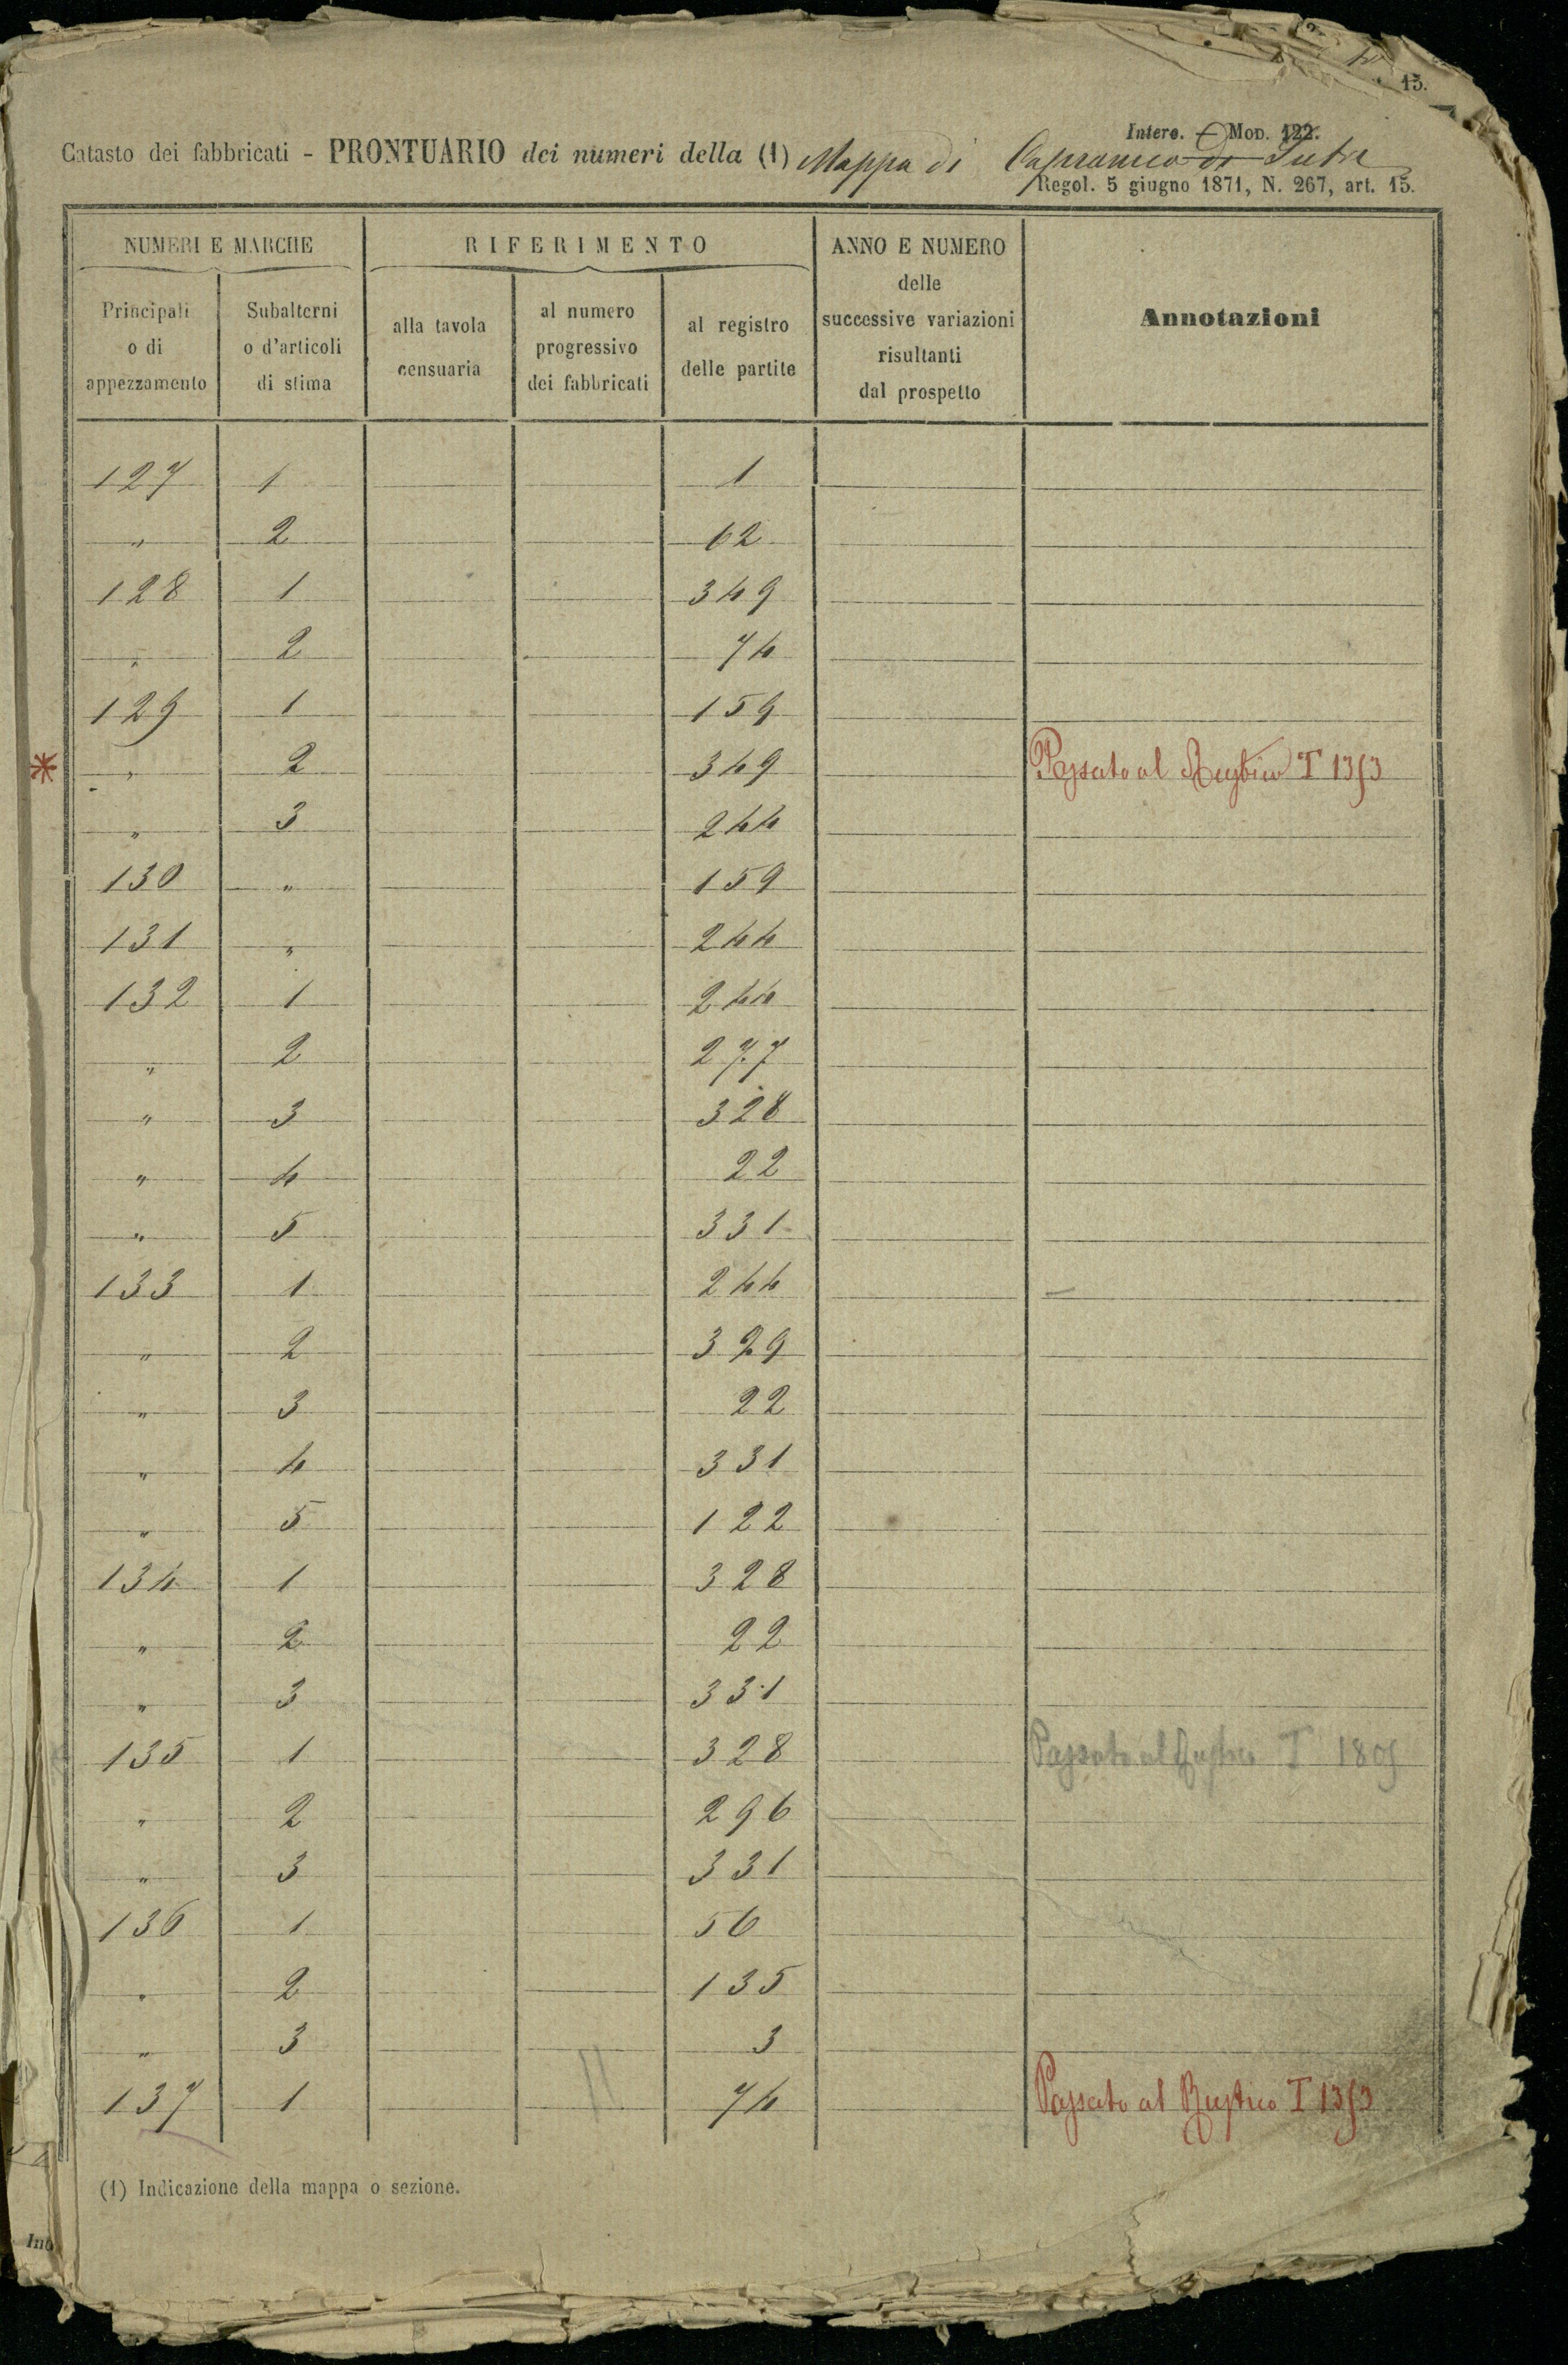 15.
Interc. Mod. 122.
Catasto dei fabbricati - PRONTUARIO dei numeri della (1) Mappa di Capranica di Sutri
Regol. 5 giugno 1871, N. 267, art. 15.
NUMERI E MARCHE RIFERIMENTO ANNO E NUMERO delle successive variazioni risultanti dal prospetto Annotazioni
Principali o di appezzamento Subalterni o d'articoli di stima alla tavola censuaria al numero progressivo dei fabbricati al registro delle partite
127 1 1
" 2 62
128 1 349
" 2 74
129 1 159
* " 2 349 Passato al Rustico T 1353
" 3 244
130 " 159
131 " 244
132 1 244
" 2 277
" 3 328
" 4 22
" 5 331
133 1 244
" 2 329
" 3 22
" 4 331
" 5 122
134 1 328
" 2 22
" 3 331
135 1 328 Passato al Rustico T
" 2 296
" 3 331
136 1 56
" 2 135
" 3 3
137 1 74 Passato al Rustico T 1353
(1) Indicazione della mappa o sezione.
Int